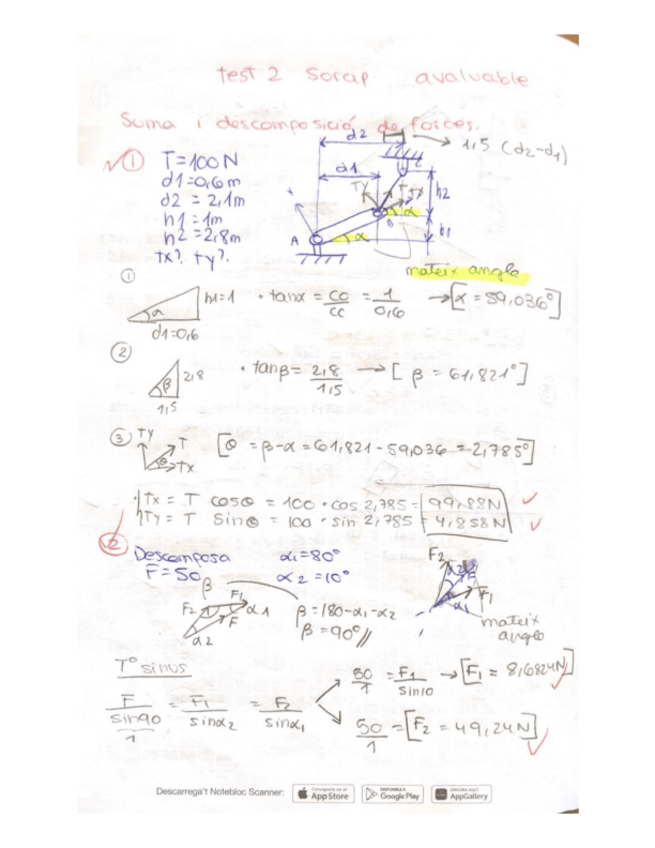 test 2 Sorap avaluable
Suma i descomposició de forces.
d2
1,5 (d2-d1)
① T=100N
d1=0,6m
d2 = 2,1m
h1=1m
h2=2,8m
tx? ty?
d1
h2
h1
Ty
T
A
B
α
α
mateix angle
①
α
h1=1
d1=0,6
· tanα = CO/CC = 1/0,6 → [α = 59,036°]
②
β
2,8
1,5
· tanβ = 2,8/1,5 → [β = 61,821°]
③ Ty
T
θ
Tx
[θ = β-α = 61,821 - 59,036 = 2,785°]
Tx = T cosθ = 100 · cos 2,785 = 99,88N
Ty = T sinθ = 100 · sin 2,785 = 4,858N
② Descomposa α1=80°
F=50 α2=10°
β
F2 F1 α1
F
α2
β = 180-α1-α2
β = 90°//
F2
α2
F
F1
α1
mateix
angle
Tª sinus
F/sin90 = F1/sinα2 = F2/sinα1
1
50/1 = F1/sin10 → [F1 = 8,6824N]
50/1 = [F2 = 49,24N]
Descarrega't Notebloc Scanner:
App Store
Google Play
AppGallery